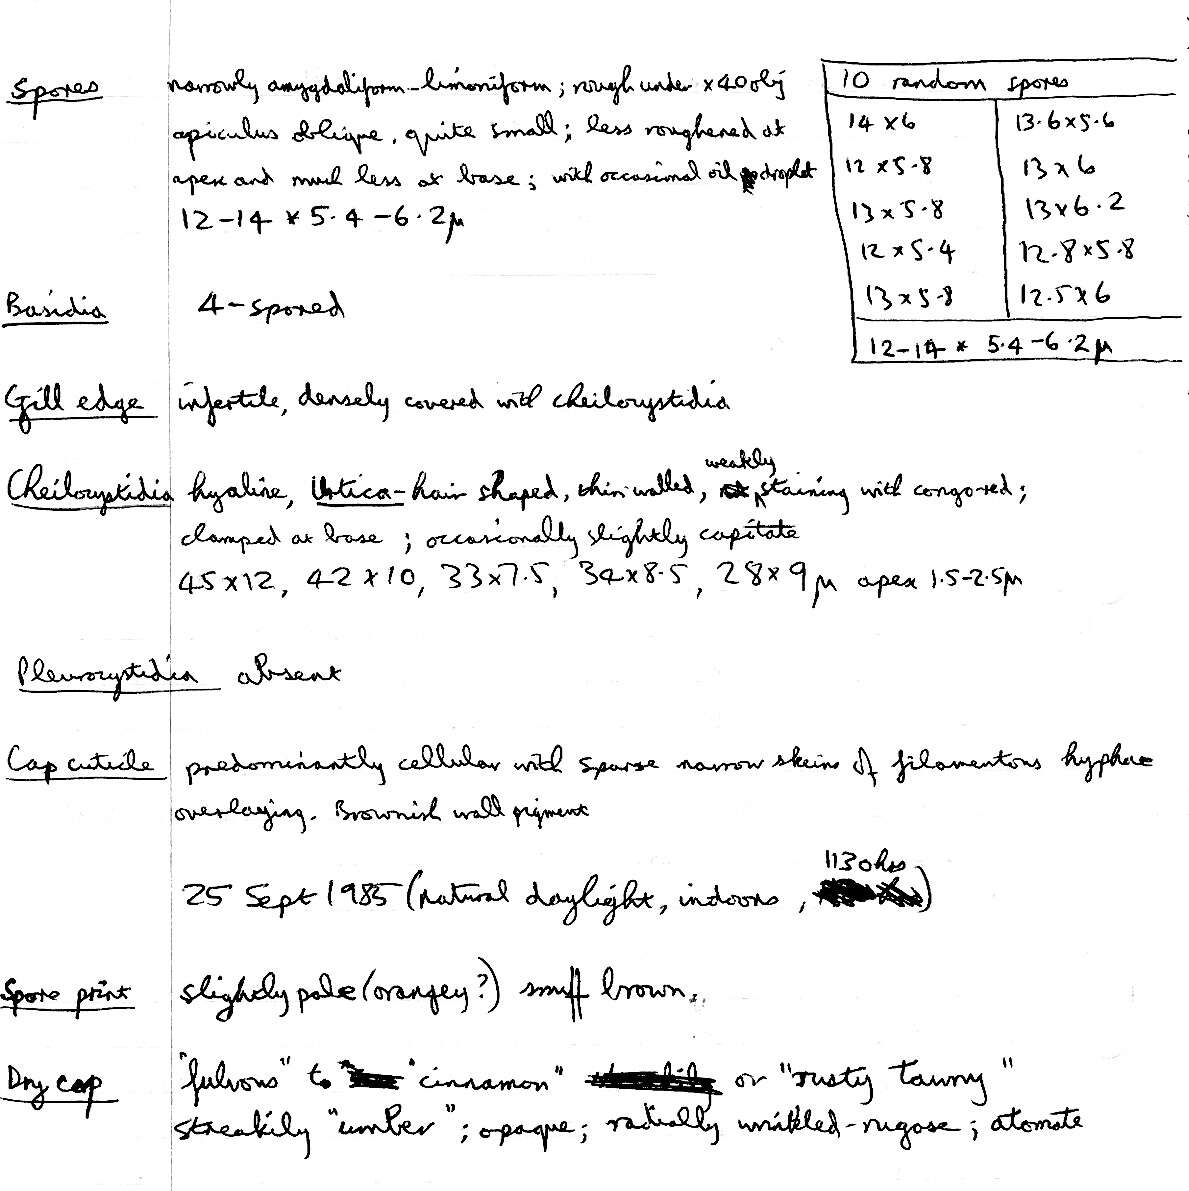 Spores narrowly amygdaliform-limoniform; rough under x40 obj
apiculus oblique, quite small; less roughened at
apex and much less at base; with occasional oil droplet
12-14 x 5.4-6.2μ
10 random spores
14 x 6 13.6 x 5.6
12 x 5.8 13 x 6
13 x 5.8 13 x 6.2
12 x 5.4 12.8 x 5.8
13 x 5.8 12.5 x 6
12-14 x 5.4-6.2μ
Basidia 4-spored
Gill edge infertile, densely covered with cheilocystidia
Cheilocystidia hyaline, Urtica-hair shaped, thin walled, weakly staining with congo-red;
clamped at base; occasionally slightly capitate
45x12, 42x10, 33x7.5, 34x8.5, 28x9μ apex 1.5-2.5μ
Pleurocystidia absent
Cap cuticle predominantly cellular with sparse narrow skeins of filamentous hyphae
overlaying. Brownish wall pigment
25 Sept 1985 (natural daylight, indoors, 1130hrs)
Spore print slightly pale (orangey?) snuff brown.
Dry cap "fulvous" to "cinnamon" or "rusty tawny"
streakily "umber"; opaque; radially wrinkled-rugose; atomate